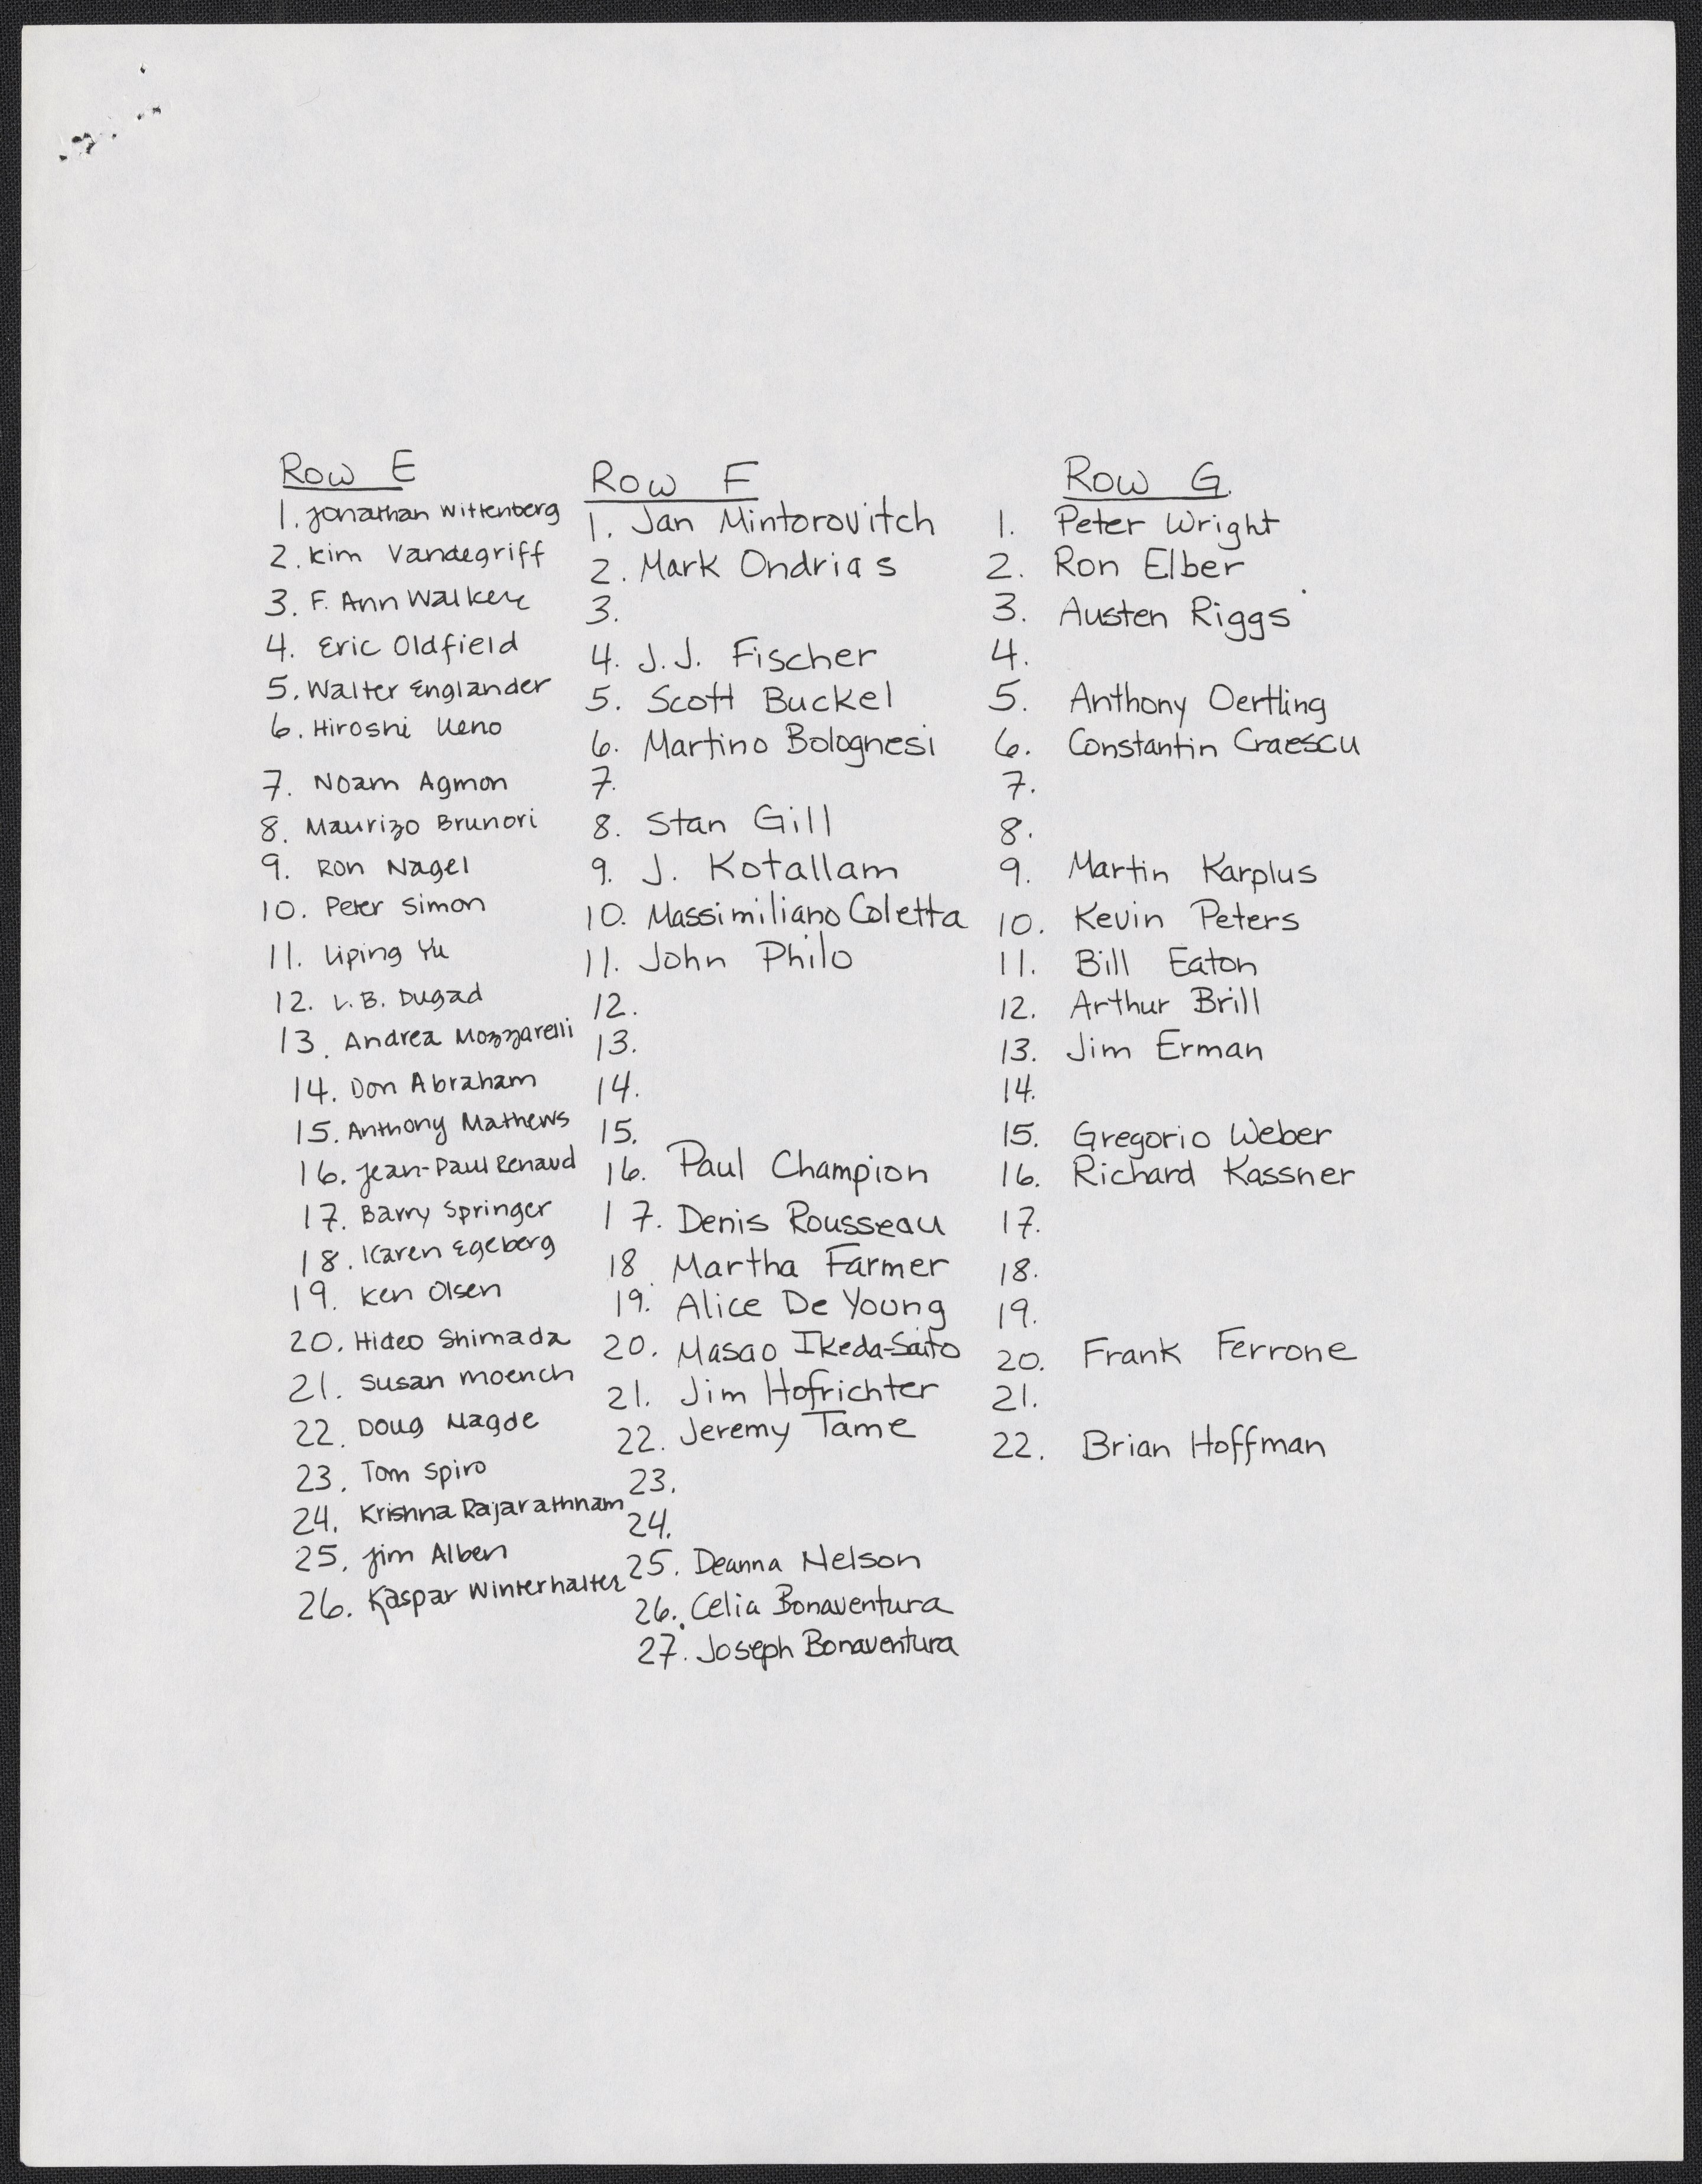 Row E
1. Jonathan Wittenberg
2. Kim Vandegriff
3. F. Ann Walker
4. Eric Oldfield
5. Walter Englander
6. Hiroshi Ueno
7. Noam Agmon
8. Maurizo Brunori
9. Ron Nagel
10. Peter Simon
11. Liping Yu
12. L.B. Dugad
13. Andrea Mozzarelli
14. Don Abraham
15. Anthony Mathews
16. Jean-Paul Renaud
17. Barry Springer
18. Karen Egeberg
19. Ken Olsen
20. Hideo Shimada
21. Susan Moench
22. Doug Magde
23. Tom Spiro
24. Krishna Rajarathnam
25. Jim Alben
26. Kaspar Winterhalter
Row F
1. Jan Mintorovitch
2. Mark Ondrias
3.
4. J.J. Fischer
5. Scott Buckel
6. Martino Bolognesi
7.
8. Stan Gill
9. J. Kotallam
10. Massimiliano Coletta
11. John Philo
12.
13.
14.
15.
16. Paul Champion
17. Denis Rousseau
18 Martha Farmer
19. Alice De Young
20. Masao Ikeda-Saito
21. Jim Hofrichter
22. Jeremy Tame
23.
24.
25. Deanna Nelson
26. Celia Bonaventura
27. Joseph Bonaventura
Row G.
1. Peter Wright
2. Ron Elber
3. Austen Riggs
4.
5. Anthony Oertling
6. Constantin Craescu
7.
8.
9. Martin Karplus
10. Kevin Peters
11. Bill Eaton
12. Arthur Brill
13. Jim Erman
14.
15. Gregorio Weber
16. Richard Kassner
17.
18.
19.
20. Frank Ferrone
21.
22. Brian Hoffman